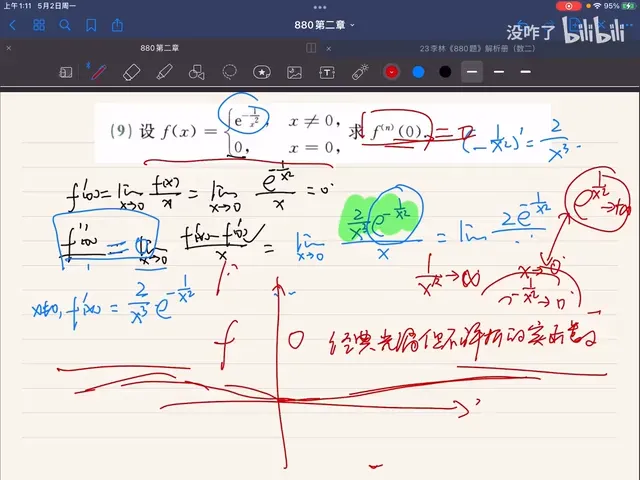 上午1:11 5月2日周一
95%
880第二章
没咋了 bilibili
880第二章
23李林《880题》解析册（数二）
(9) 设 f(x) = { e^{-1/x²}, x ≠ 0, 0, x = 0, 求 f^{(n)}(0).
(-1/x²)' = 2/x³
f'(0) = lim_{x→0} f(x)/x = lim_{x→0} e^{-1/x²}/x = 0
f''(0) = lim_{x→0} f'(x) - f'(0)/x = lim_{x→0} 2/x³ e^{-1/x²}/x = lim 2e^{-1/x²}
e^{1/x²} → +∞
1/x² → ∞
x → 0
-1/x² → 0
x≠0, f'(x) = 2/x³ e^{-1/x²}
f 0 经典光滑但不解析的实函数